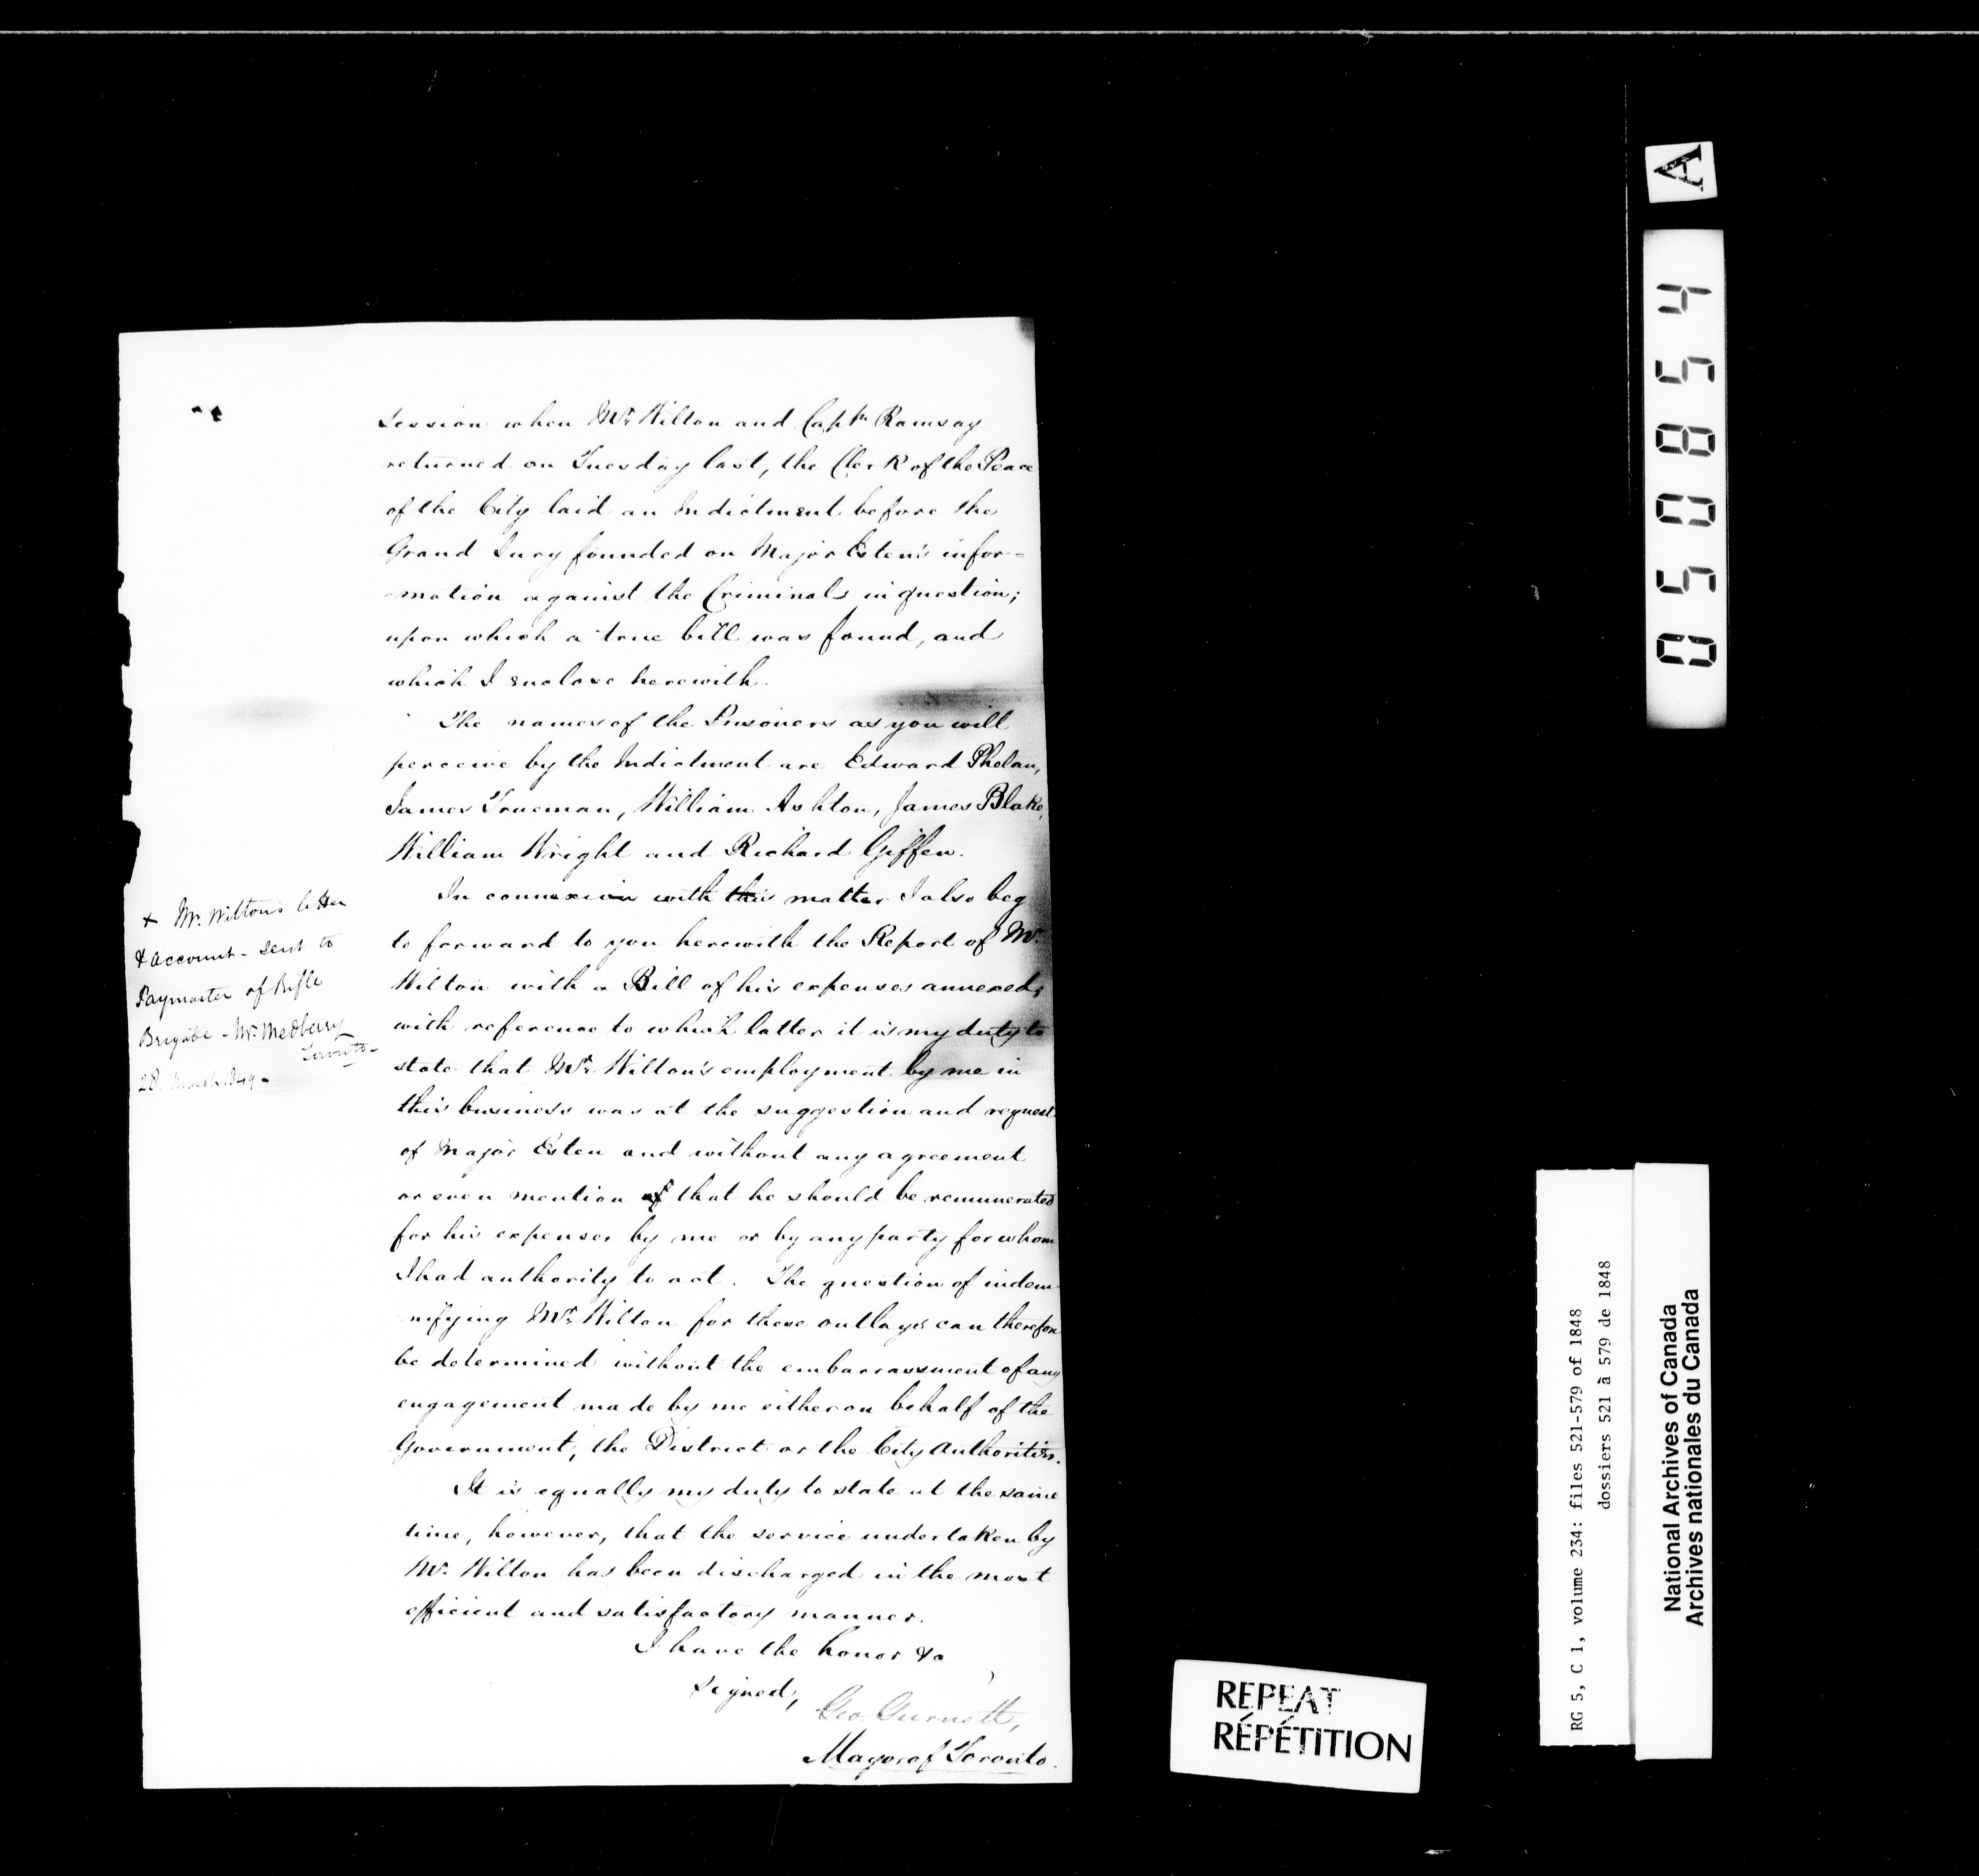 session when Mr. Wilton and Captn Ramsay
returned on Tuesday last, the Clerk of the Peace
of the City laid an Indictment before the
Grand Jury founded on Major Esten's infor-
-mation against the Criminals in question;
upon which a true bill was found, and
which I enclose herewith.
The names of the Prisoners as you will
perceive by the Indictment are Edward Phelan,
James Trueman, William Ashton, James Blake,
William Wright and Richard Giffen.
In connexion with this matter I also beg
to forward to you herewith the Report of Mr.
Wilton with a Bill of his expenses annexed;
with reference to which latter it is my duty to
state that Mr. Wilton's employment by me in
this business was at the suggestion and request
of Major Esten and without any agreement
or even mention of that he should be remunerated
for his expenses by me or by any party for whom
I had authority to act. The question of indem-
nifying Mr. Wilton for these outlays can therefore
be determined without the embarrassment of any
engagement made by me either on behalf of the
Government, the District or the City Authorities.
It is equally my duty to state at the same
time, however, that the service undertaken by
Mr. Wilton has been discharged in the most
efficient and satisfactory manner.
I have the honor &c
signed,
Geo. Gurnett,
Mayor of Toronto.
x Mr. Wilton's letter
& account - sent to
Paymaster of Rifle
Brigade - Mr. Medberry
Toronto -
28 March 1849 -
A
050854
RG 5, C 1, volume 234: files 521-579 of 1848
dossiers 521 à 579 de 1848
National Archives of Canada
Archives nationales du Canada
REPEAT
RÉPÉTITION